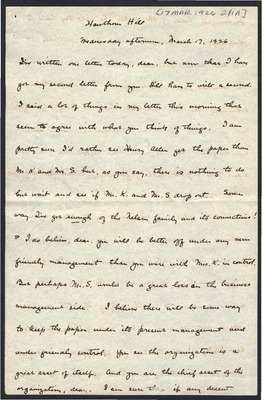 [17 MAR 1926 2/1A]
Hawthorn Hill
Wednesday afternoon, March 17, 1926
I've written one letter today, dear, but now that I have
got my second letter from you I'll have to write a second.
I said a lot of things in my letter this morning that
seem to agree with what you think of things. I am
pretty sure I'd rather see Henry Allen get the paper than
Mr. K. and Mr. S. but, as you say, there is nothing to do
but wait and see if Mr. K. and Mr. S. drop out.
way I've got enough of the Nelson family and its connections!
I do believe, dear, you will be better off under any new
friendly management than you were with Mr. K. in control.
But perhaps Mr. S. would be a great loss on the business
management side. I believe there will be some way
to keep the paper under its present management and
under friendly control. You see the organization is a
great asset of itself. And you are the chief asset of the
organization, dear. I am sure if any decent